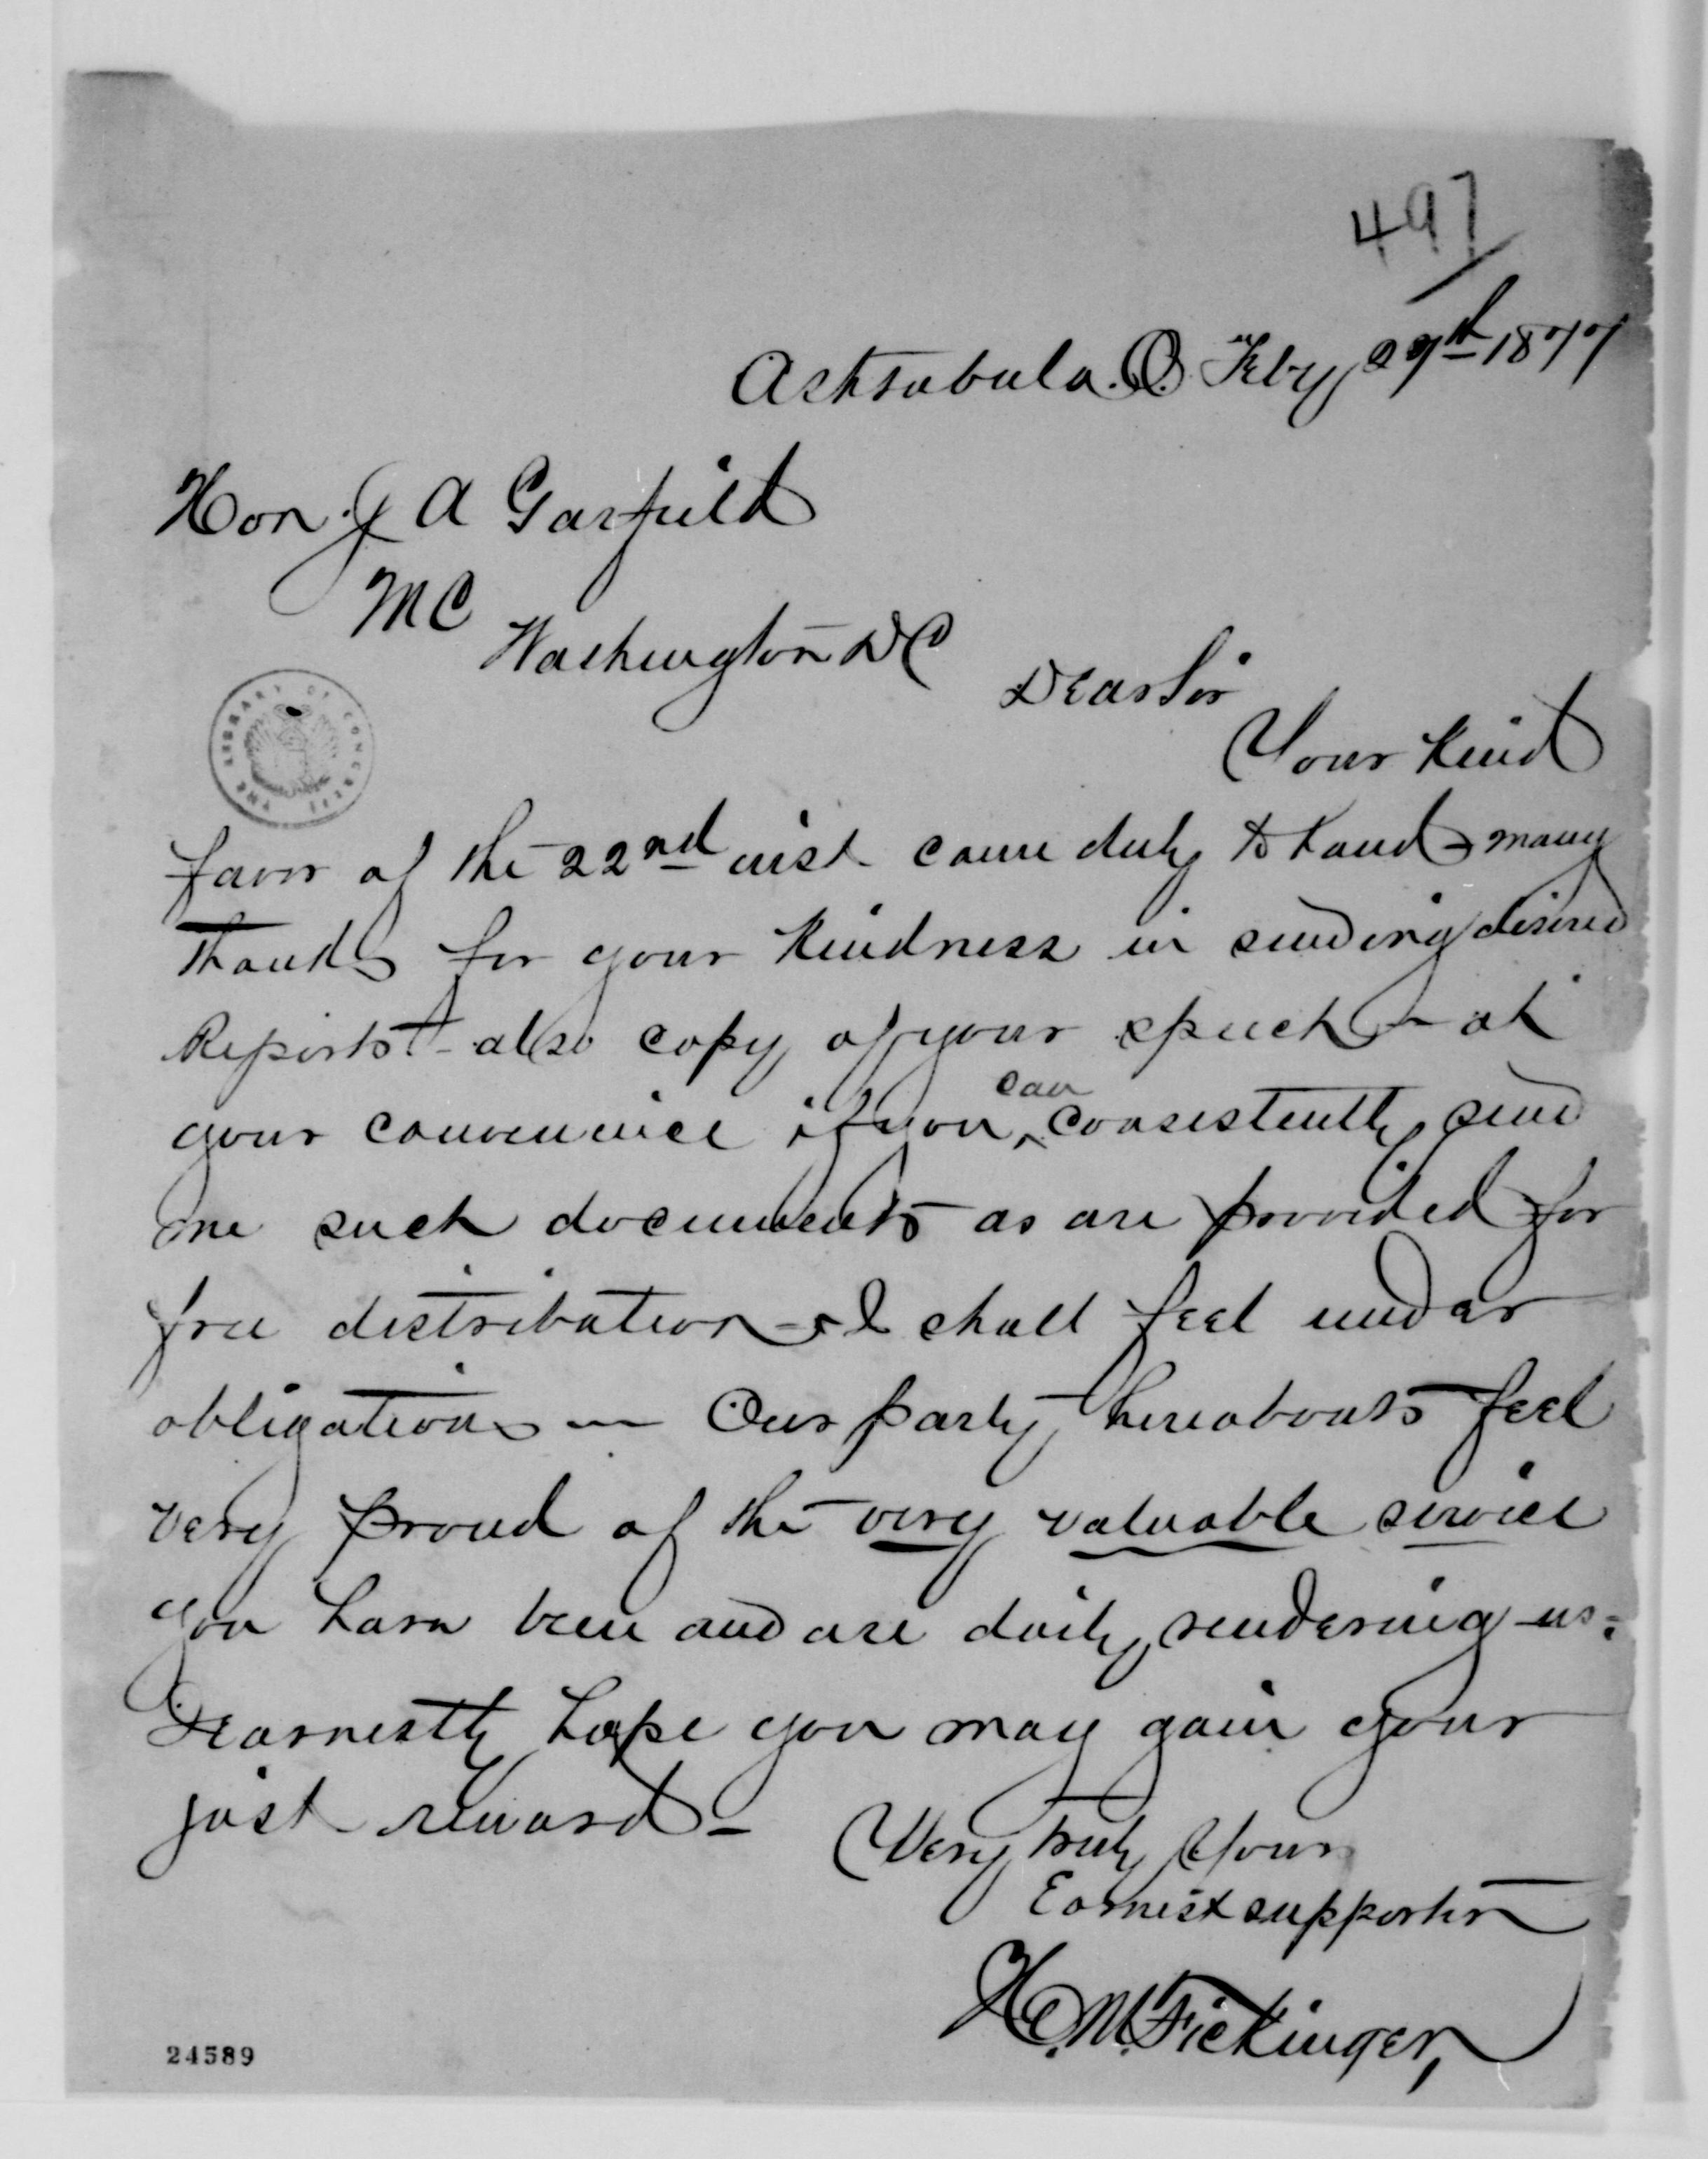 497
Ashtabula. O. Feby 27th 1877
Hon. J A Garfield
MC
Washington DC
Dear Sir
Your kind
favor of the 22nd inst came duly to hand - many
thanks for your kindness in sending desired
Reports - also copy of your speech - at
can
your convenience if you ^ consistently send
me such documents as are provided for
free distribution - I shall feel under
obligations - Our party hereabouts feel
very proud of the very valuable service
you have been and are daily rendering us.
I earnestly hope you may gain your
just reward -
Very truly Your
Earnest supporter
H. M. Fickinger,
THE LIBRARY OF CONGRESS
24589